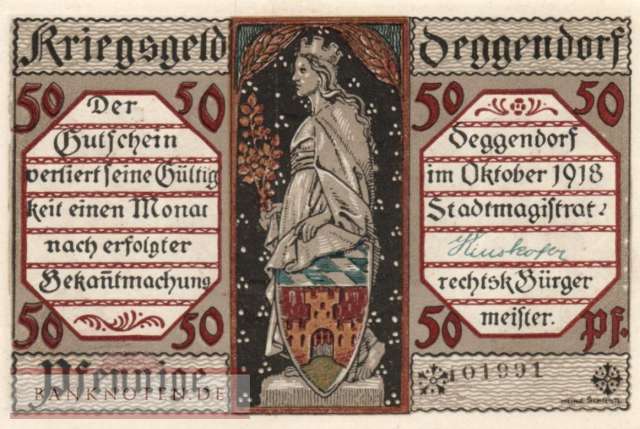 Kriegsgeld
Deggendorf
50 50
Der
Gutschein
verliert seine Gültig
keit einen Monat
nach erfolgter
Bekan̄tmachung
50 50
Pfennige
BANKNOTEN.DE
50 50
Deggendorf
im Oktober 1918
Stadtmagistrat:
rechtsk. Bürger
meister.
50 Pf.
101991